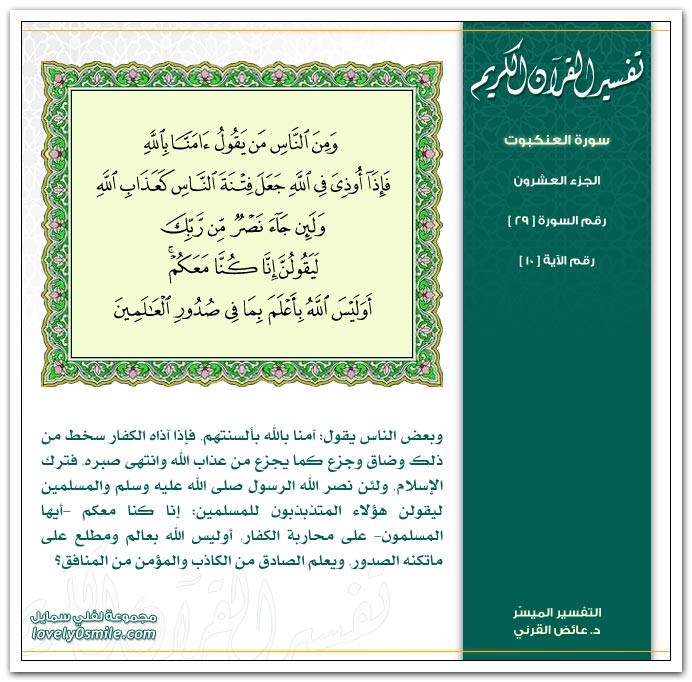 تفسير القرآن الكريم
سورة العنكبوت
الجزء العشرون
رقم السورة [ ٢٩ ]
رقم الآية [ ١٠ ]
وَمِنَ ٱلنَّاسِ مَن يَقُولُ ءَامَنَّا بِٱللَّهِ
فَإِذَآ أُوذِىَ فِى ٱللَّهِ جَعَلَ فِتْنَةَ ٱلنَّاسِ كَعَذَابِ ٱللَّهِ
وَلَئِن جَآءَ نَصْرٌ مِّن رَّبِّكَ
لَيَقُولُنَّ إِنَّا كُنَّا مَعَكُمْ ۚ
أَوَلَيْسَ ٱللَّهُ بِأَعْلَمَ بِمَا فِى صُدُورِ ٱلْعَٰلَمِينَ
وبعض الناس يقول: آمنا بالله بألسنتهم، فإذا آذاه الكفار سخط من
ذلك وضاق وجزع كما يجزع من عذاب الله وانتهى صبره، فترك
الإسلام، ولئن نصر الله الرسول صلى الله عليه وسلم والمسلمين
ليقولن هؤلاء المتذبذبون للمسلمين: إنا كنا معكم -أيها
المسلمون- على محاربة الكفار، أوليس الله بعالم ومطلع على
ماتكنه الصدور، ويعلم الصادق من الكاذب والمؤمن من المنافق؟
التفسير الميسّر
د. عائض القرني
مجموعة لفلي سمايل
lovely0smile.com
تفسير القرآن الكريم